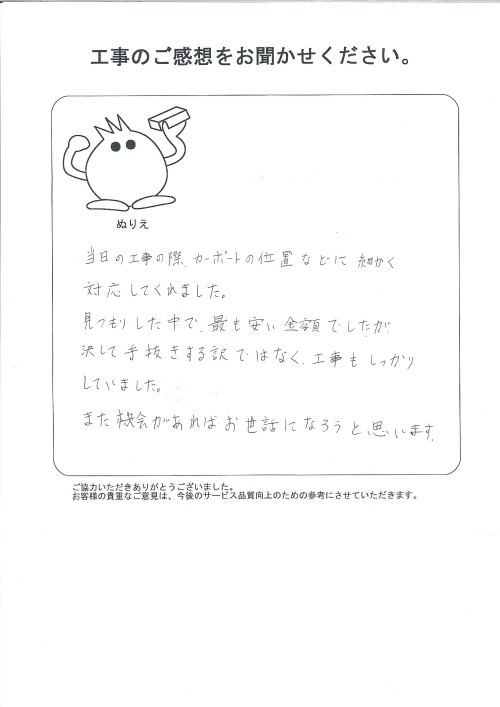 工事のご感想をお聞かせください。
ぬりえ
当日の工事の際、カーポートの位置などに細かく
対応してくれました。
見つもりした中で、最も安い金額でしたが
決して手抜きする訳ではなく、工事もしっかり
していました。
また機会があればお世話になろうと思います。
ご協力いただきありがとうございました。
お客様の貴重なご意見は、今後のサービス品質向上のための参考にさせていただきます。